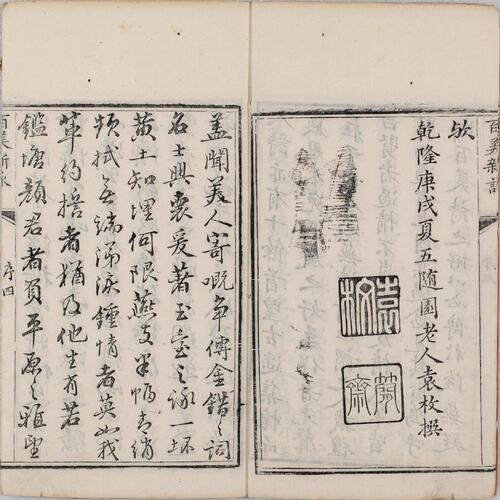 百美新詠
欤
乾隆庚戌夏五随園老人袁枚撰
袁枚
簡齋
蓋聞美人寄嘅争傳金錯之詞
名士興衷爰著玉臺之詠一抔
黄土知埋何限燕支半幅青綃
頻拭無端涕淚鍾情者莫如我
輩約指者猶及他生有若
鑑塘顔君者負平原之雅望
百美新詠
序四